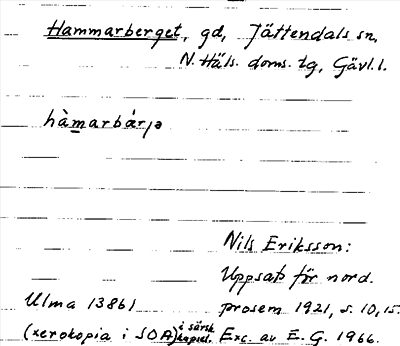 Hammarberget, gd, Jättendals sn,
N. Häls. doms. tg, Gävl. l.
hàmarbárjə
Nils Eriksson:
Uppsats för nord.
Ulma 13861 prosem 1921, s. 10, 15.
(xerokopia i SOA) i särsk. kapsel. Exc. av E. G. 1966.